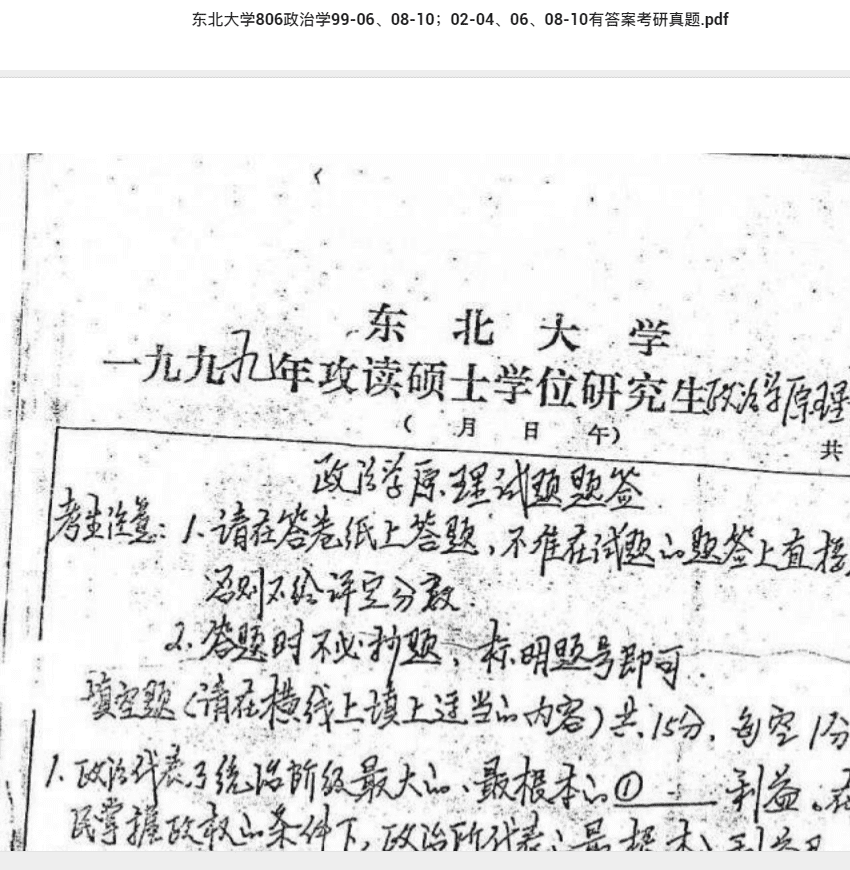 东北大学806政治学99-06、08-10；02-04、06、08-10有答案考研真题.pdf
东北大学
一九九九年攻读硕士学位研究生政治学原理
（ 月 日 午）
共
政治学原理试题题签
考生注意：1.请在答卷纸上答题，不准在试题的题签上直接
否则不给评定分数.
2.答题时不必抄题，标明题号即可.
填空题（请在横线上填上适当的内容）共15分，每空1分
1.政治代表了统治阶级最大的、最根本的①____利益。在
民掌握政权的条件下，政治所代表的最根本的利益